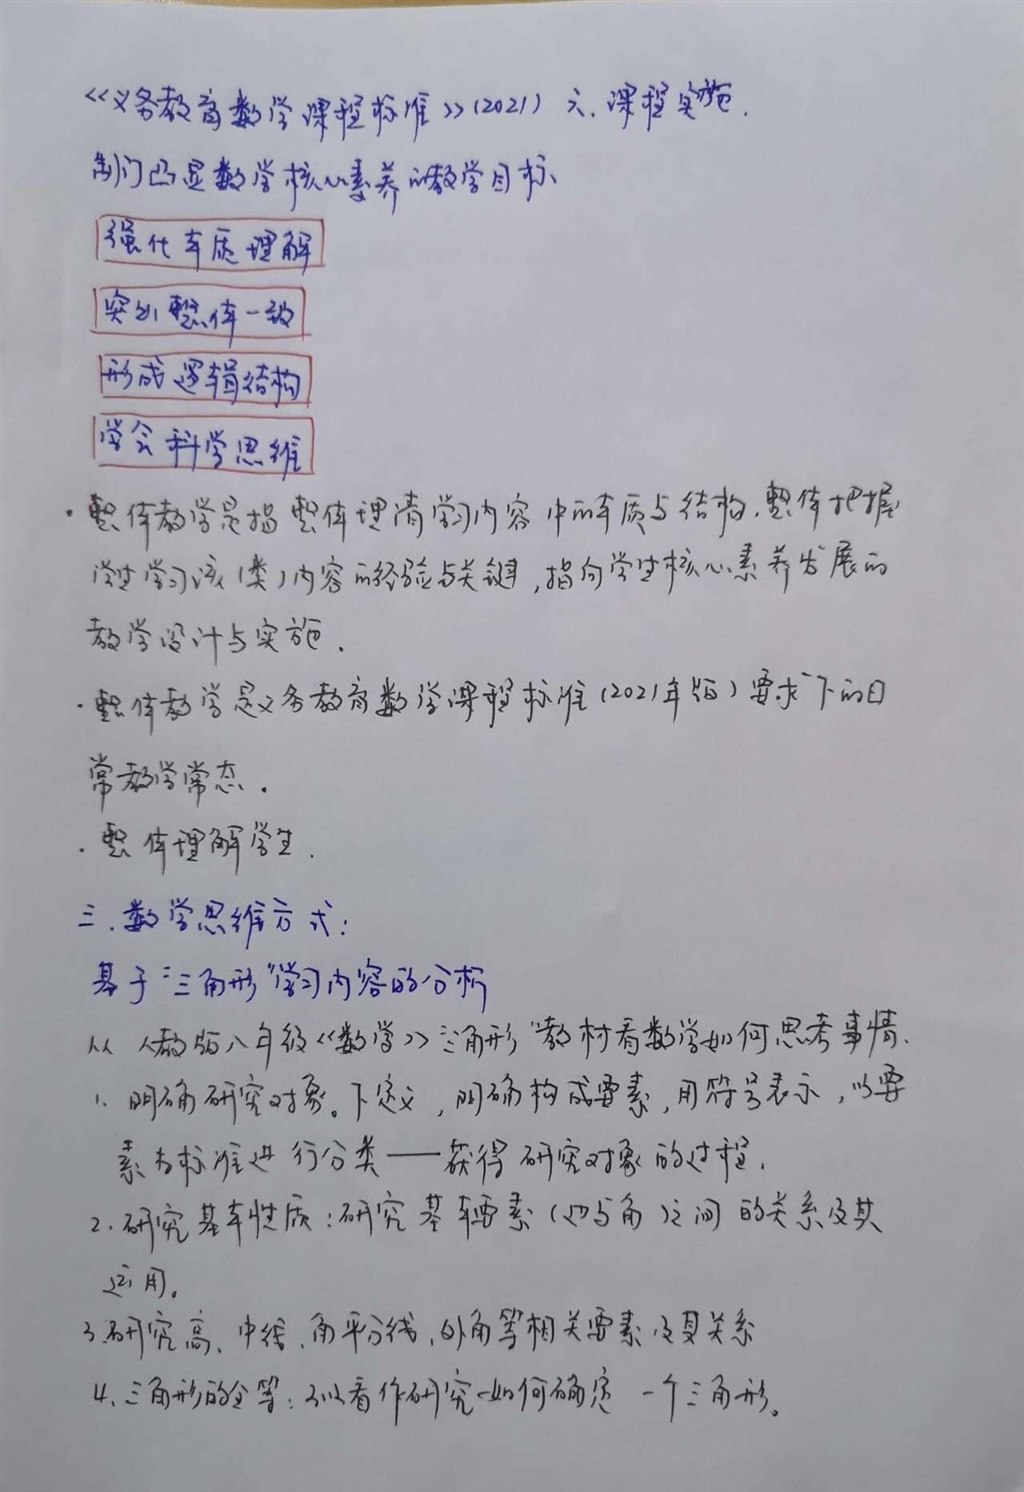 《义务教育数学课程标准》(2021) 六.课程实施.
制订凸显数学核心素养的教学目标
强化本质理解
突出整体一致
形成逻辑结构
学会科学思维
·整体教学是指整体理清学习内容中的本质与结构,整体把握
学生学习该(类)内容的经验与关键,指向学生核心素养发展的
教学设计与实施.
·整体教学是义务教育数学课程标准(2021年版)要求下的日
常教学常态。
·整体理解学生.
三.数学思维方式:
基于“三角形”学习内容的分析
从人教版八年级《数学》“三角形”教材看数学如何思考事情.
1、明确研究对象。下定义,明确构成要素,用符号表示,以要
素为标准进行分类——获得研究对象的过程.
2.研究基本性质:研究基本要素(边与角)之间的关系及其
运用。
3.研究高、中线、角平分线、外角等相关要素及其关系
4、三角形的全等:可以看作研究如何确定一个三角形。